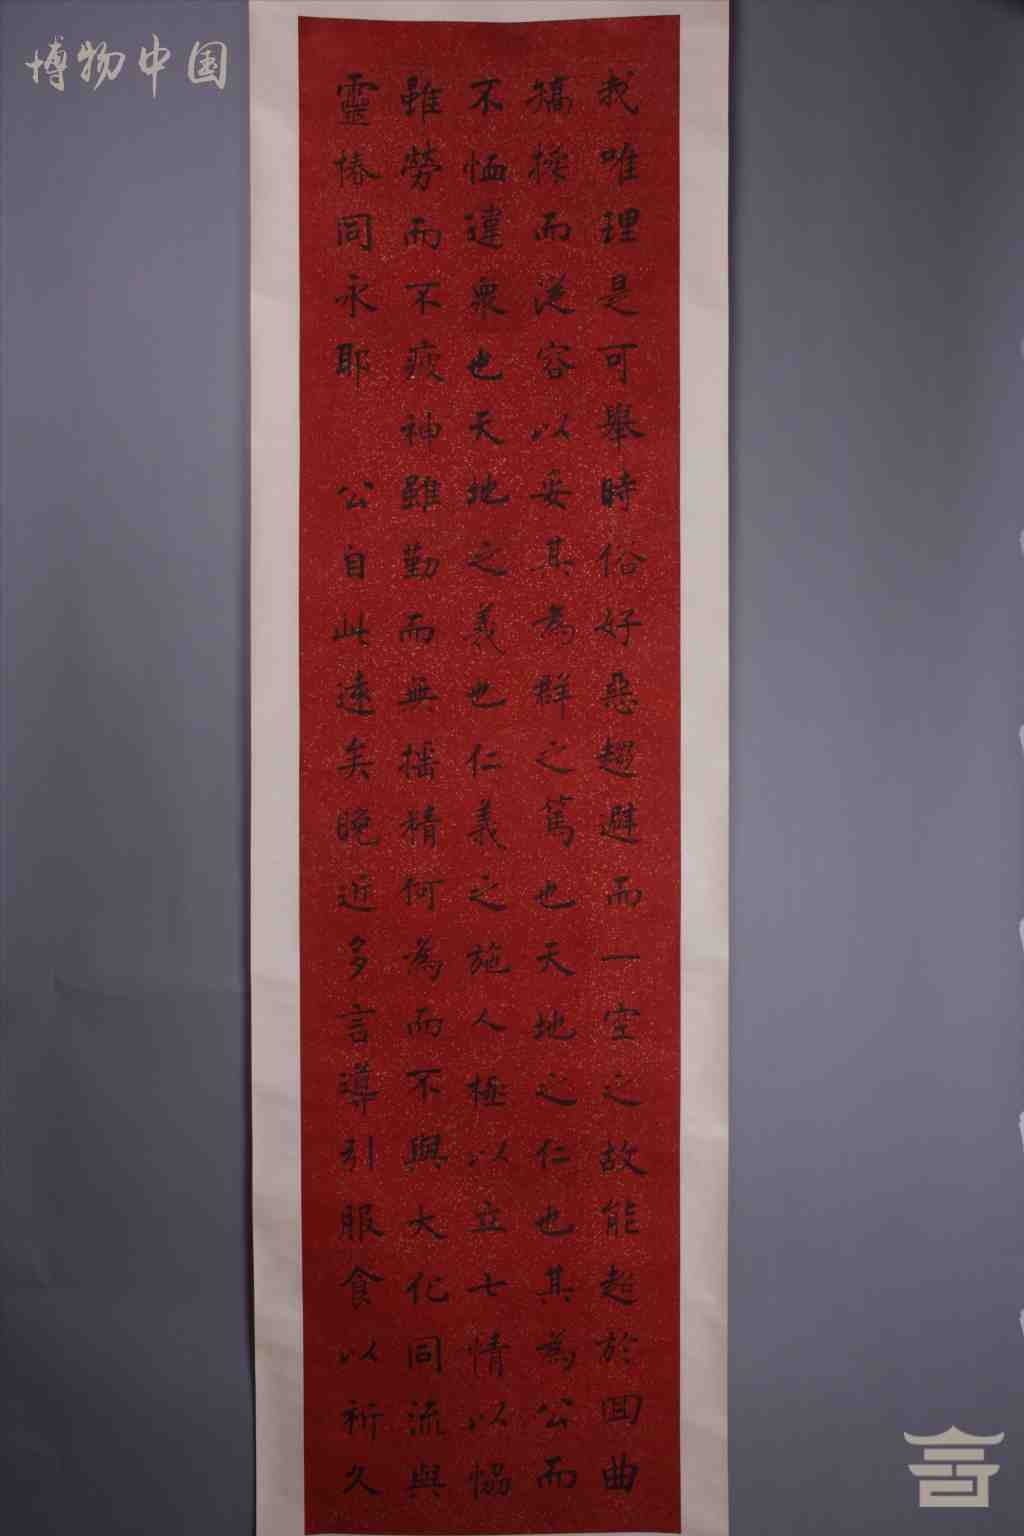 博物中国
我唯理是可舉時俗好惡趨避而一空之故能超於回曲
矯揉而從容以妥其為群之篤也天地之仁也其為公而
不恤違衆也天地之義也仁義之施人極以立七情以惱
雖勞而不疲神雖勤而無搖精何為而不與大化同流與
靈椿同永耶 公自此遠矣晚近多言導引服食以祈久